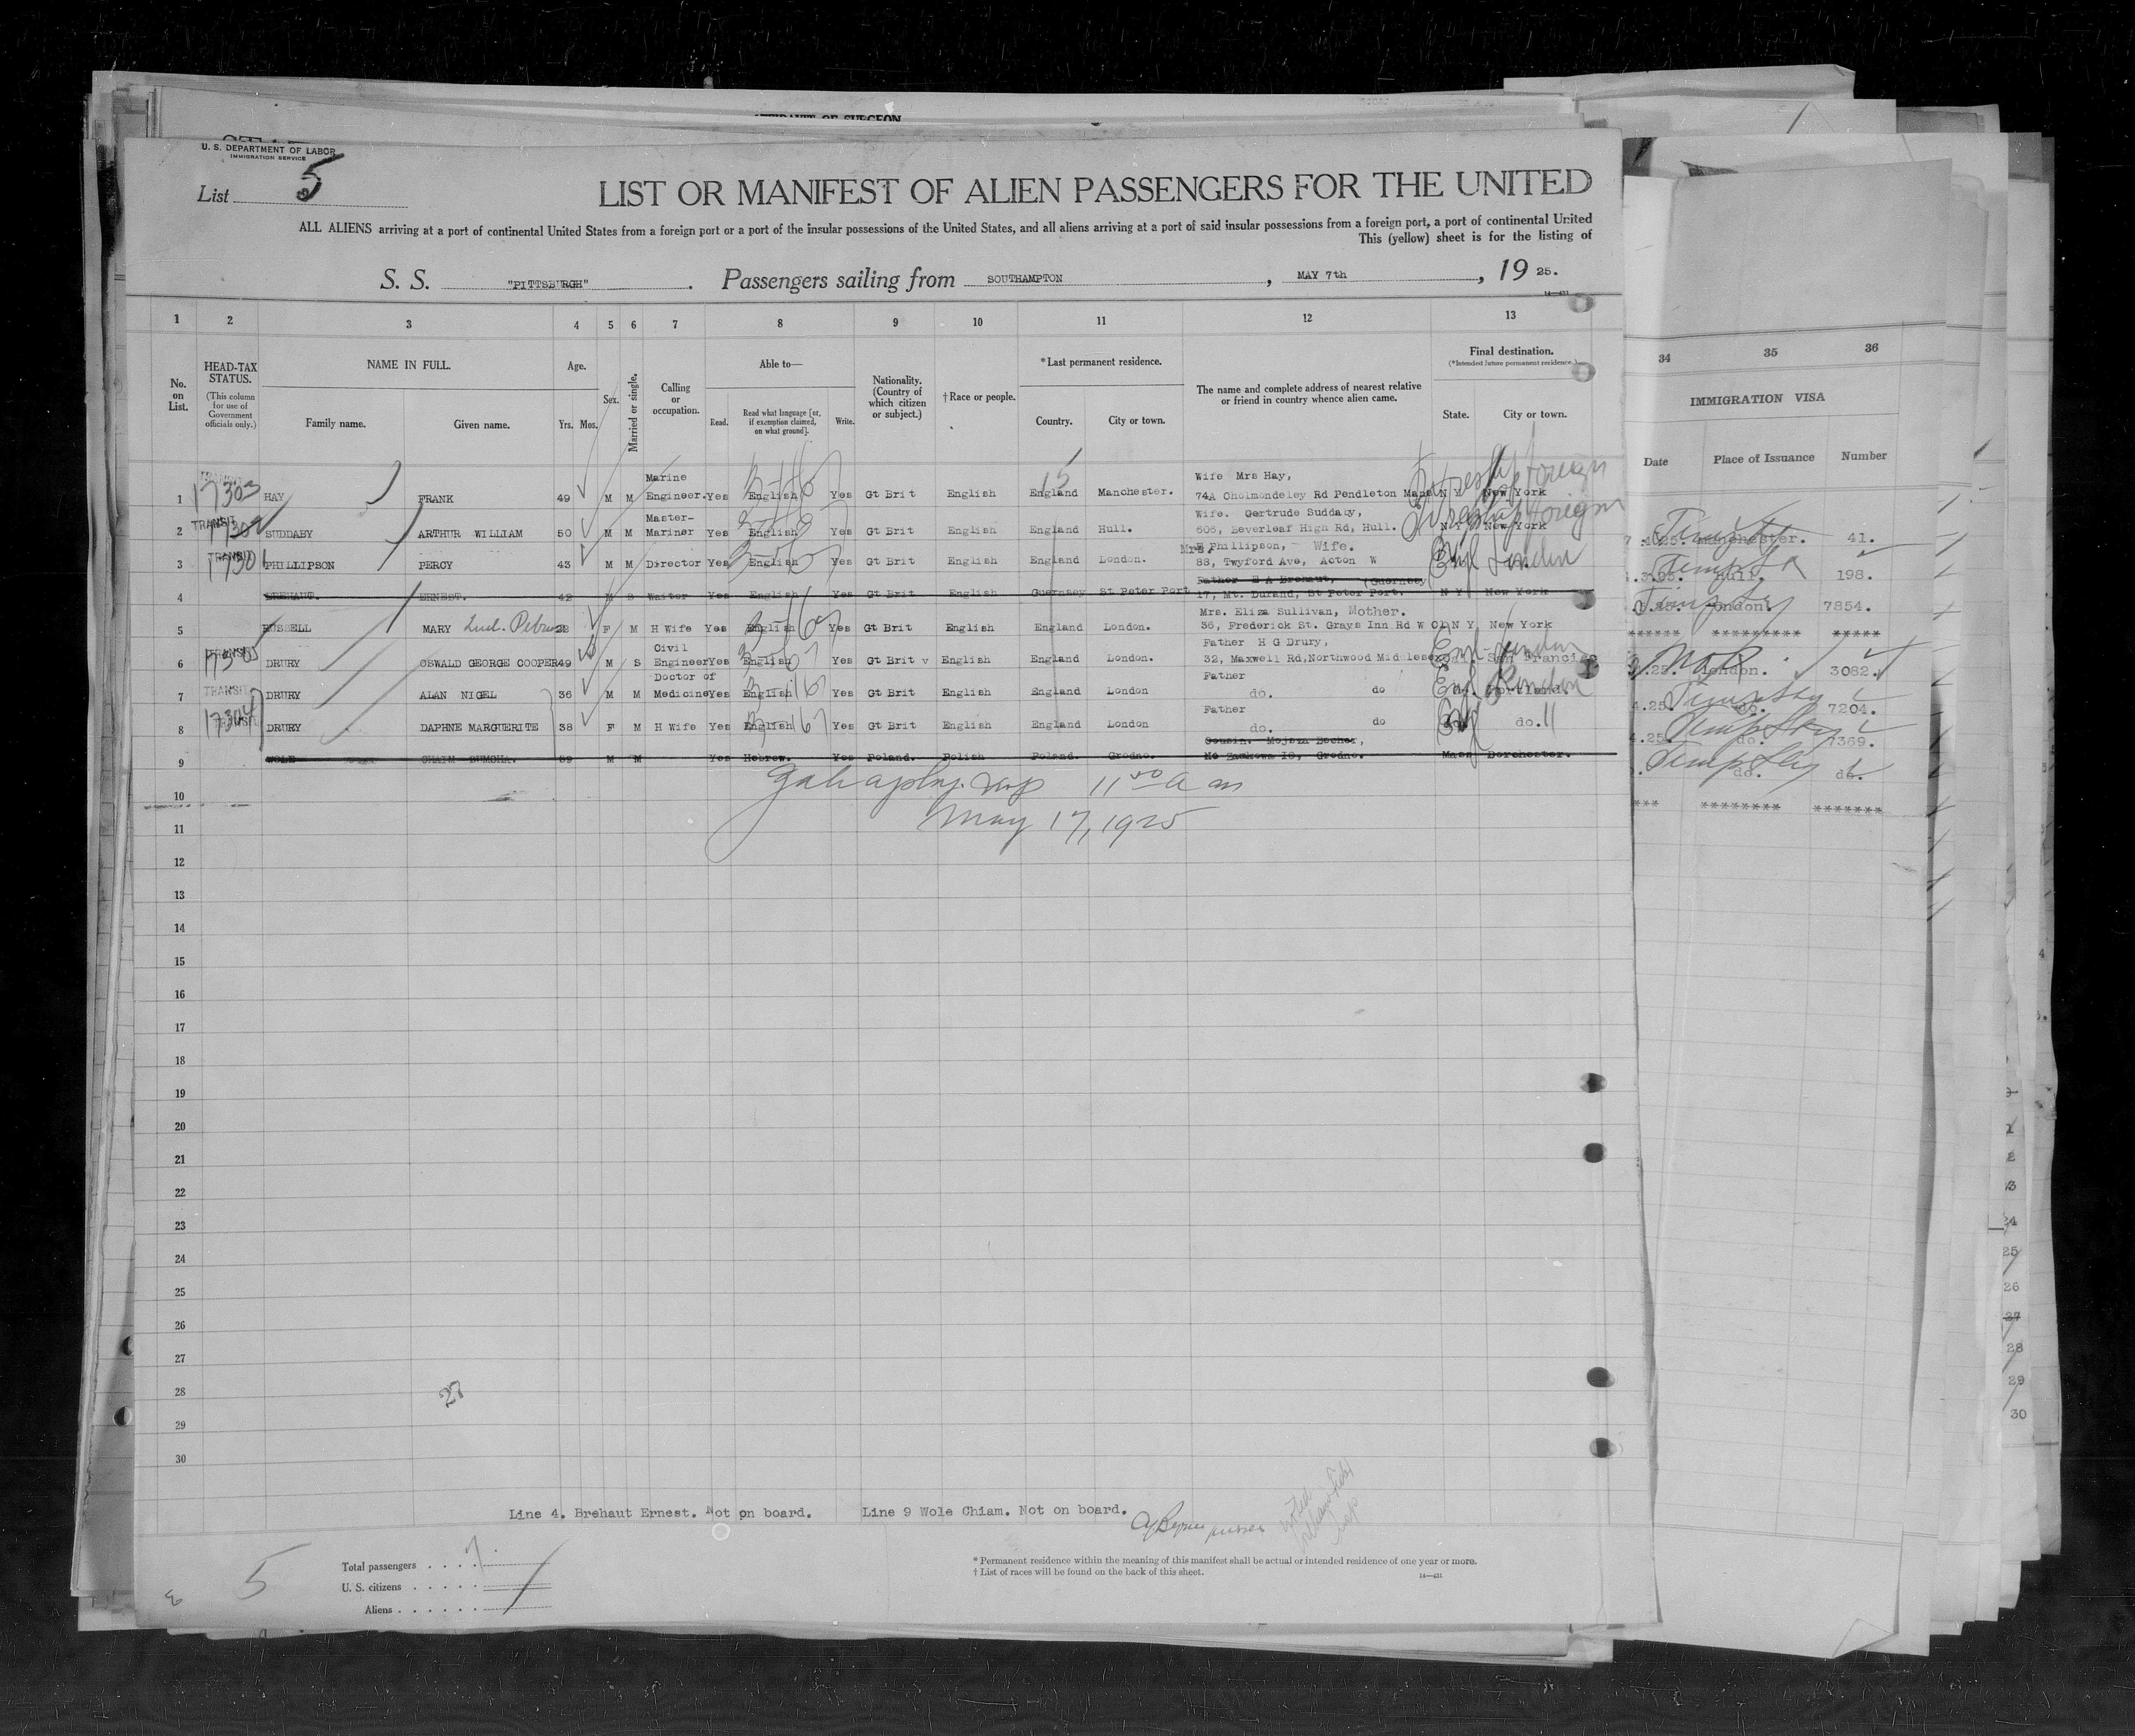 AFFIDAVIT OF SURGEON
U. S. DEPARTMENT OF LABOR
IMMIGRATION SERVICE
List 5
LIST OR MANIFEST OF ALIEN PASSENGERS FOR THE UNITED
ALL ALIENS arriving at a port of continental United States from a foreign port or a port of the insular possessions of the United States, and all aliens arriving at a port of said insular possessions from a foreign port, a port of continental United
This (yellow) sheet is for the listing of
S. S. "PITTSBURGH". Passengers sailing from SOUTHAMPTON, MAY 7th, 19 25.
14—431
1 2 3 4 5 6 7 8 9 10 11 12 13
34 35 36
No. on List.
HEAD-TAX STATUS.
(This column for use of Government officials only.)
NAME IN FULL.
Family name. Given name.
Age.
Yrs. Mos.
Sex.
Married or single.
Calling or occupation.
Able to—
Read. Read what language [or, if exemption claimed, on what ground]. Write.
Nationality. (Country of which citizen or subject.)
† Race or people.
* Last permanent residence.
Country. City or town.
The name and complete address of nearest relative or friend in country whence alien came.
Final destination.
(*Intended future permanent residence.)
State. City or town.
IMMIGRATION VISA
Date Place of Issuance Number
15
1 17303 HAY FRANK 49 M M Marine Engineer. Yes English Yes Gt Brit English England Manchester. Wife Mrs Hay, 74A Cholmondeley Rd Pendleton Man N Y New York
2 TRANSIT 17302 SUDDABY ARTHUR WILLIAM 50 M M Master-Mariner Yes English Yes Gt Brit English England Hull. Wife. Gertrude Suddaby, 606, Beverleaf High Rd, Hull. N Y New York
Manchester. 41.
3 TRANSIT 17301 PHILLIPSON PERCY 43 M M Director Yes English Yes Gt Brit English England London. Mrs. E Phillipson, Wife. 88, Twyford Ave, Acton W Eng London
Hull. 198.
4 BREHAUT. ERNEST. 42 M S Waiter Yes English Yes Gt Brit English Guernsey St Peter Port Father E A Brehaut, (Guernsey 17, Mt. Durand, St Peter Port. N Y New York
London. 7854.
5 RUSSELL MARY 28 F M H Wife Yes English Yes Gt Brit English England London. Mrs. Eliza Sullivan, Mother. 36, Frederick St. Grays Inn Rd W C1 N Y New York
****** ********* *****
6 TRANSIT 17305 DRURY OSWALD GEORGE COOPER 49 M S Civil Engineer Yes English Yes Gt Brit v English England London. Father H G Drury, 32, Maxwell Rd, Northwood Middlesex San Francisc Eng London
London. 3082.
7 TRANSIT DRURY ALAN NIGEL 36 M M Doctor of Medicine Yes English Yes Gt Brit English England London Father do. do Portland. Eng London
4.25. do. 7204.
8 17304 TRANSIT DRURY DAPHNE MARGUERITE 38 F M H Wife Yes English Yes Gt Brit English England London Father do. do do. Eng 11
4.25. do. 7369.
9 WOLE CHAIM SUMCHA. 59 M M Yes Hebrew. Yes Poland. Polish Poland. Grodno. Cousin. Mojsza Bocher, Grodno. Mass Dorchester.
do. do.
*** ******** *******
10
11 00 a m
11
May 17, 1925
12
13
14
15
16
17
18
19
20
21
22
23
24
25
26
27
28 27
29
30
Line 4. Brehaut Ernest. Not on board. Line 9 Wole Chiam. Not on board.
purser
5
Total passengers . . . . 7
U. S. citizens . . . . .
Aliens . . . . . .
* Permanent residence within the meaning of this manifest shall be actual or intended residence of one year or more.
† List of races will be found on the back of this sheet.
14—431
24
25
26
27
28
29
30